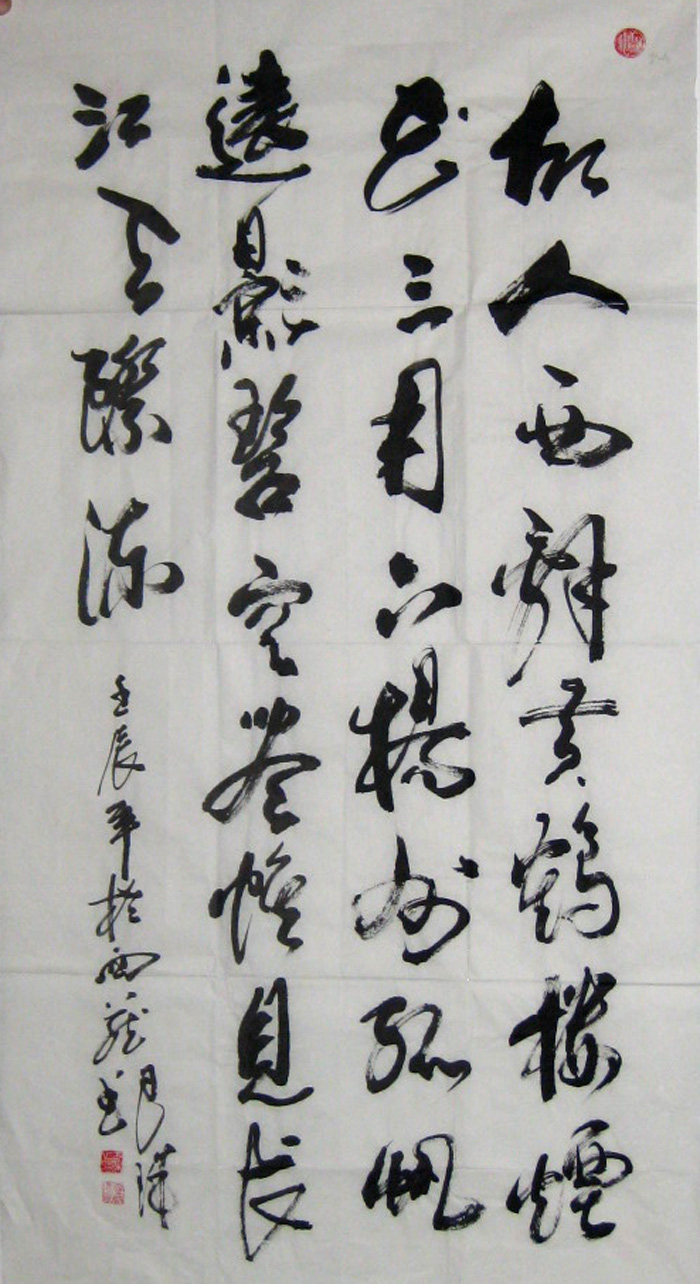 故人西辭黄鶴樓煙
花三月下揚州孤帆
遠影碧空盡惟見長
江天際流
壬辰年於西